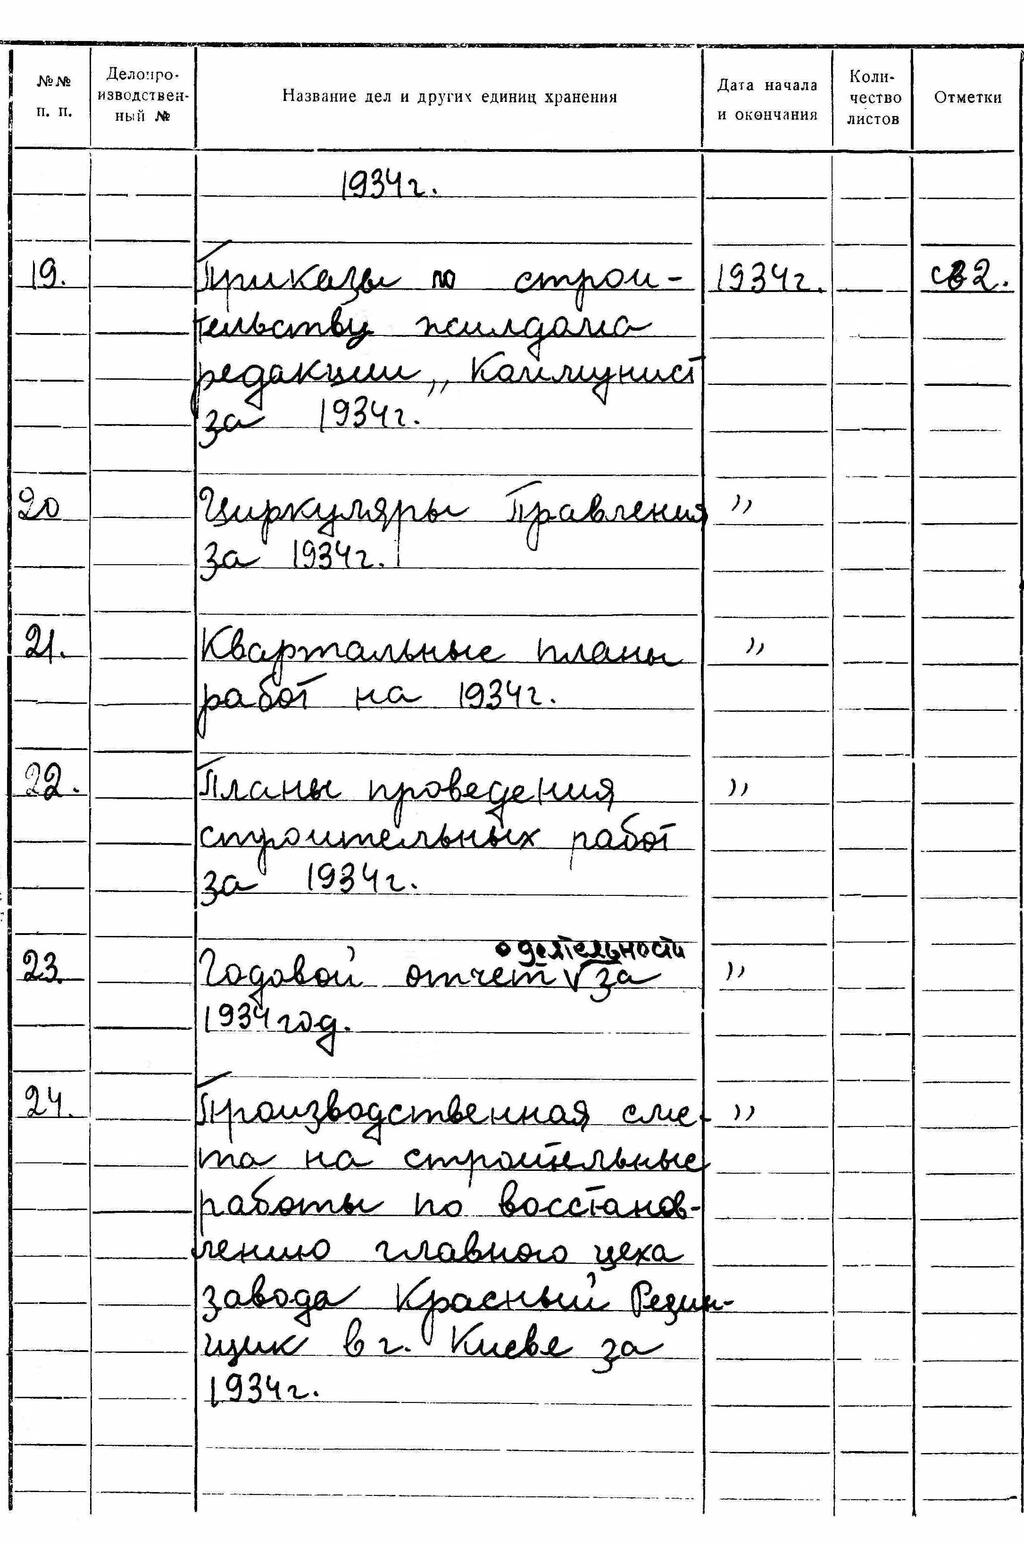 №№ п. п. Делопро-изводствен-ный № Название дел и других единиц хранения Дата начала и окончания Коли-чество листов Отметки
1934г.
19. Приказы по строи- 1934г. св2.
тельству жилдома
редакции „Коммунист
за 1934г.
20 Циркуляры Правления "
за 1934г.
21. Квартальные планы "
работ на 1934г.
22. Планы проведения "
строительных работ
за 1934г.
о деятельности
23. Годовой отчет V за "
1934 год.
24. Производственная сме- "
та на строительные
работы по восстанов-
лению главного цеха
завода Красный Резин-
щик в г. Киеве за
1934г.